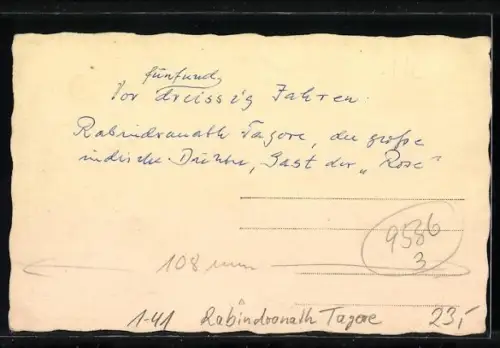 fünfund
Vor dreissig Jahren.
Rabindranath Tagore, der große
indische Dichter, Gast der „Rose"
9586
3
108 mm
1-41 Rabindranath Tagore 23,-